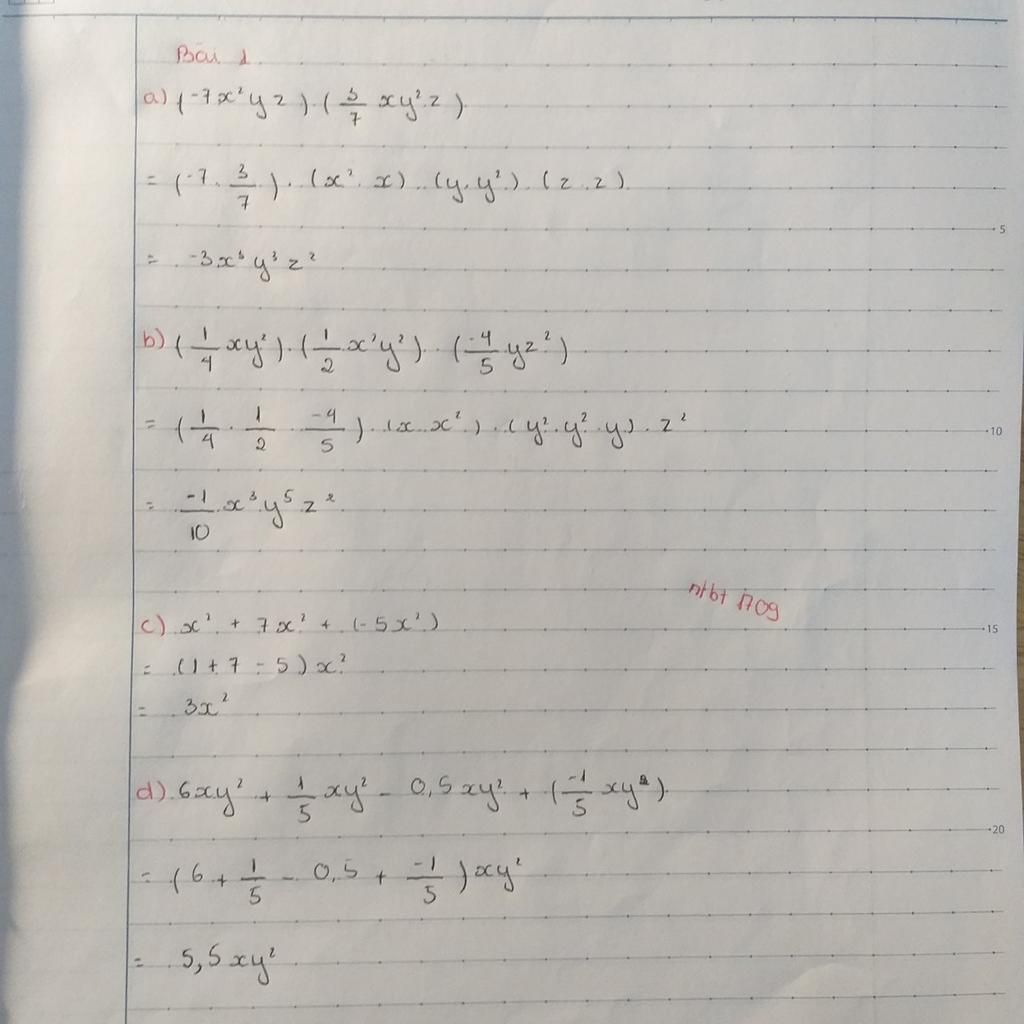 Bài 1
a) (-7x²yz).(3/7 xy²z)
= (-7.3/7).(x².x).(y.y²).(z.z)
= -3x³y³z²
5
b) (1/4 xy²).(1/2 x²y²).(-4/5 yz²)
= (1/4.1/2.-4/5).(x.x²).(y².y².y).z²
10
= -1/10 x³y⁵z²
ntbt 1709
c) x² + 7x² + (-5x²)
15
= (1+7-5)x²
= 3x²
d) 6xy² + 1/5 xy² - 0,5xy² + (-1/5 xy²)
20
= (6 + 1/5 - 0,5 + -1/5)xy²
= 5,5xy²